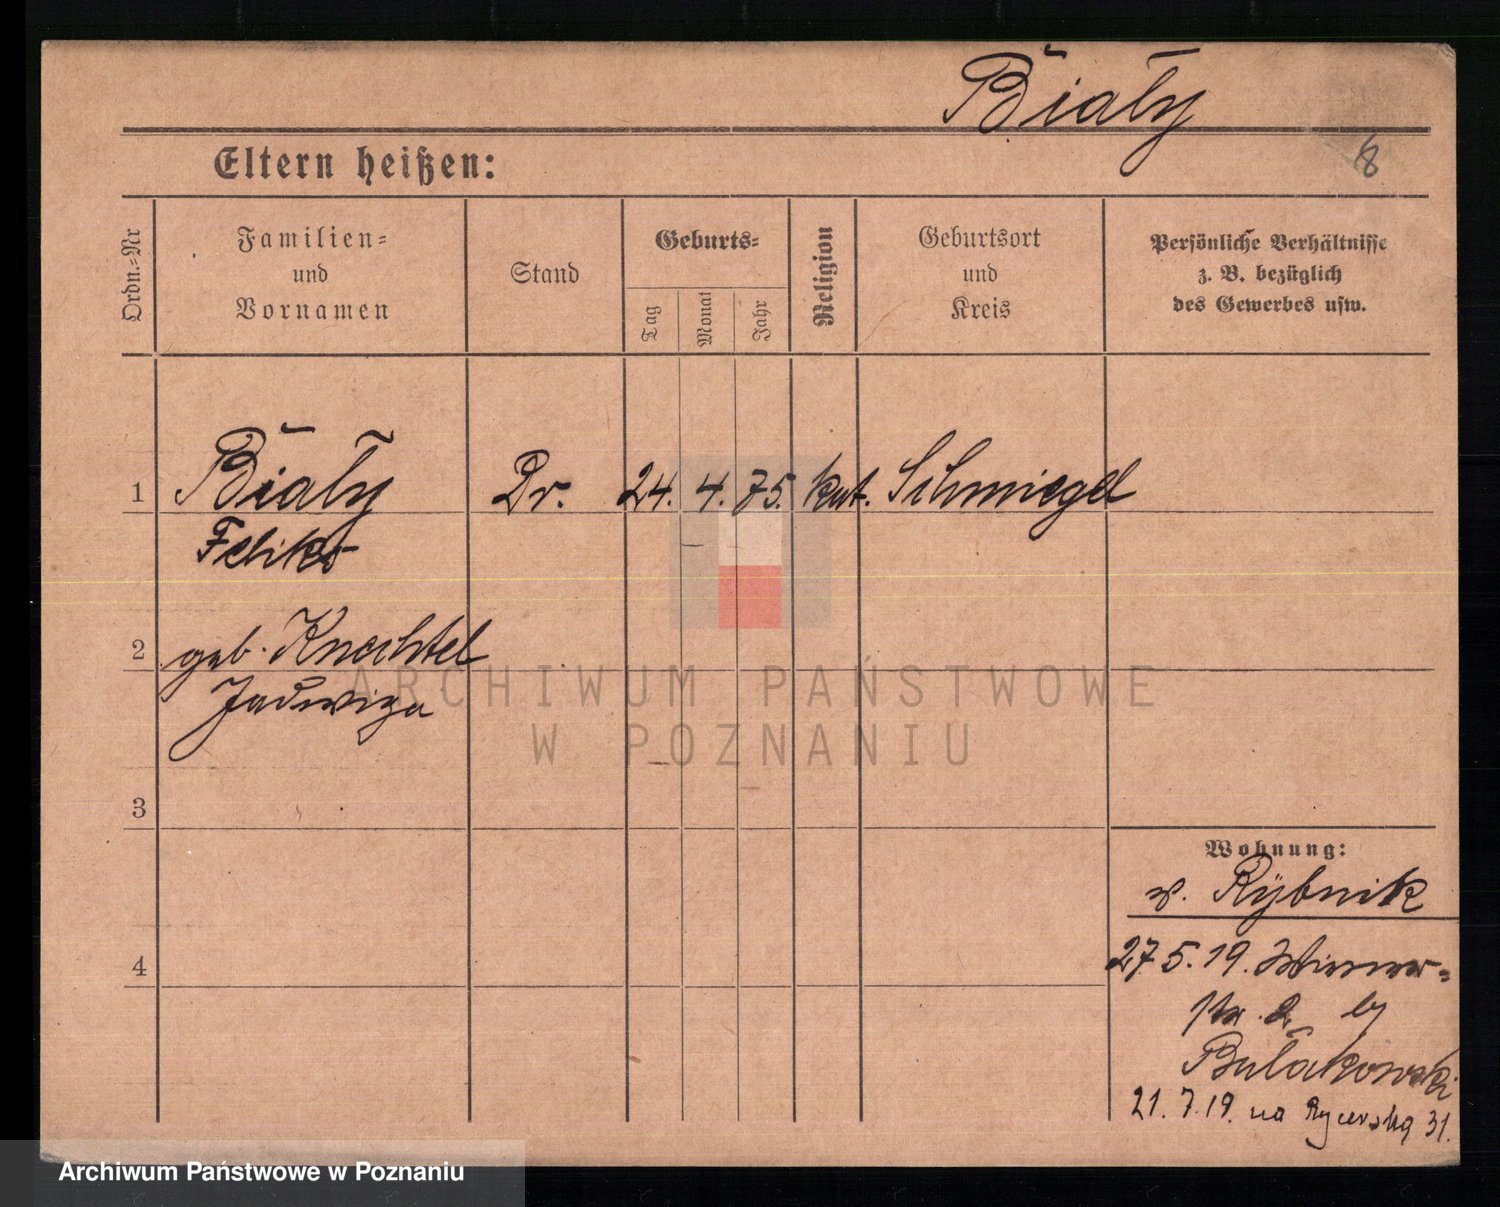 Biały
8
Eltern heißen:
Ordn.=Nr
Familien=
und
Vornamen
Stand
Geburts=
Tag
Monat
Jahr
Religion
Geburtsort
und
Kreis
Persönliche Verhältnisse
z. B. bezüglich
des Gewerbes usw.
1 Biały Dr. 24. 4. 75. kat. Schmiegel
Feliks
2 geb. Knechtel
Jadwiga
ARCHIWUM PAŃSTWOWE
W POZNANIU
3
Wohnung:
v. Rybnik
4
27 5. 19.
str. 2 by
Bułakowski
21. 7. 19. na Rycerską 31.
Archiwum Państwowe w Poznaniu